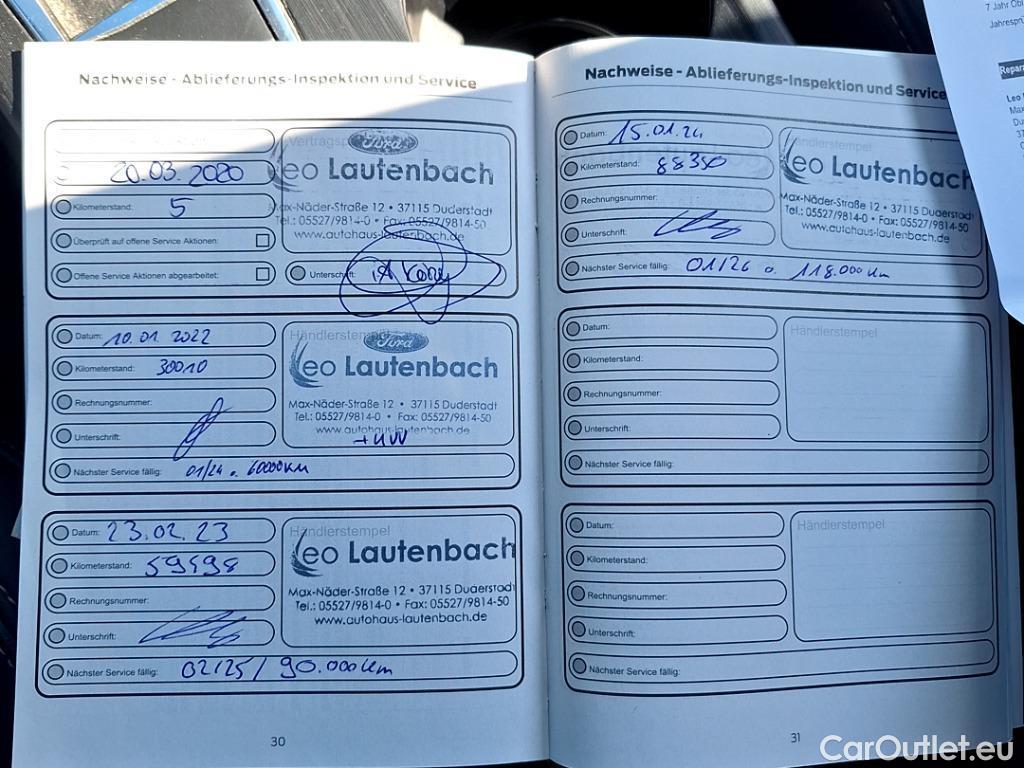 Nachweise - Ablieferungs-Inspektion und Service
20.03.2020
Kilometerstand: 5
Überprüft auf offene Service Aktionen:
Offene Service Aktionen abgearbeitet:
Ford
Leo Lautenbach
Max-Näder-Straße 12 • 37115 Duderstadt
Tel.: 05527/9814-0 • Fax: 05527/9814-50
www.autohaus-lautenbach.de
Unterschrift:
Datum: 10.01.2022
Kilometerstand: 30010
Rechnungsnummer:
Unterschrift:
Händlerstempel
Ford
Leo Lautenbach
Max-Näder-Straße 12 • 37115 Duderstadt
Tel.: 05527/9814-0 • Fax: 05527/9814-50
www.autohaus-lautenbach.de
+ UVV
Nächster Service fällig: 01/24 o. 60000KM
Datum: 23.02.23
Kilometerstand: 59998
Rechnungsnummer:
Unterschrift:
Händlerstempel
Leo Lautenbach
Max-Näder-Straße 12 • 37115 Duderstadt
Tel.: 05527/9814-0 • Fax: 05527/9814-50
www.autohaus-lautenbach.de
Nächster Service fällig: 02/25 / 90.000km
30
Nachweise - Ablieferungs-Inspektion und Service
Datum: 15.01.24
Kilometerstand: 88350
Rechnungsnummer:
Unterschrift:
Leo Lautenbach
Max-Näder-Straße 12 • 37115 Duderstadt
Tel.: 05527/9814-0 • Fax: 05527/9814-50
www.autohaus-lautenbach.de
Nächster Service fällig: 01/26 o. 118.000km
Datum:
Kilometerstand:
Rechnungsnummer:
Unterschrift:
Händlerstempel
Nächster Service fällig:
Datum:
Kilometerstand:
Rechnungsnummer:
Unterschrift:
Händlerstempel
Nächster Service fällig:
31
7 Jahr
CarOutlet.eu